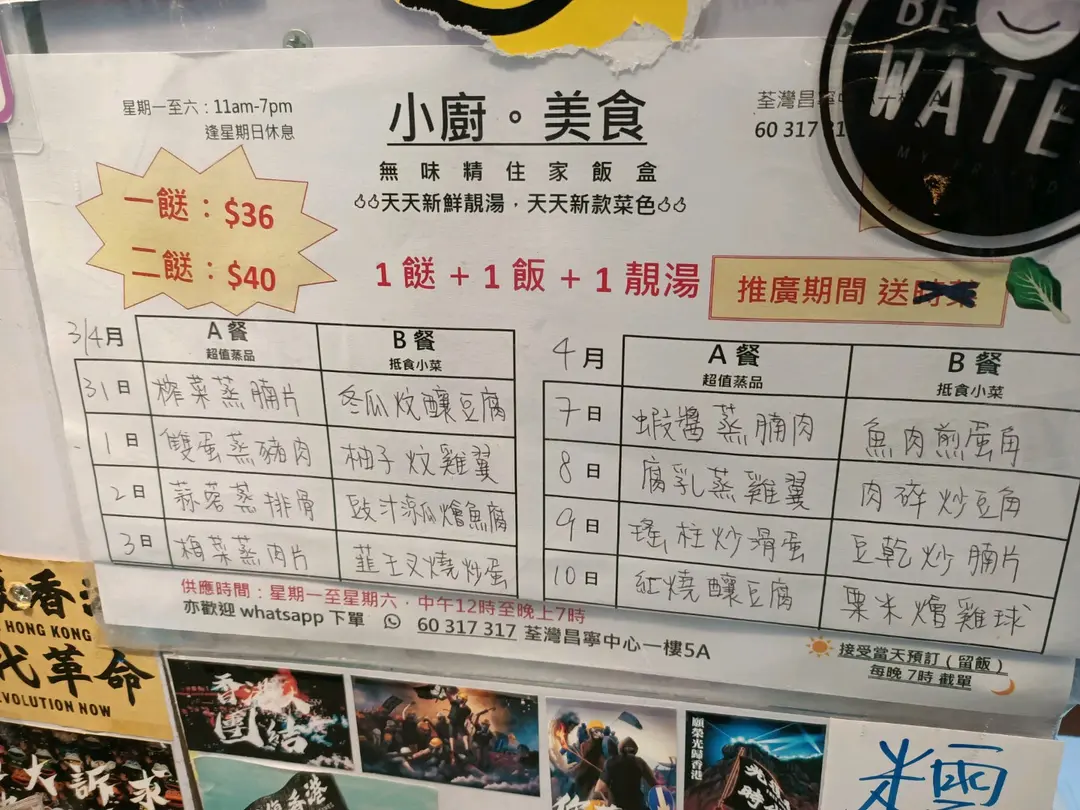 星期一至六：11am-7pm
逢星期日休息
小廚。美食
無味精住家飯盒
天天新鮮靚湯，天天新款菜色
荃灣昌寧中
60 317 31
BE
WATE
MY FRIEND
一餸：$36
二餸：$40
1 餸 + 1 飯 + 1 靚湯
推廣期間 送
3/4月 A 餐 超值蒸品 B 餐 抵食小菜
31日 榨菜蒸腩片 冬瓜炆釀豆腐
1日 雙蛋蒸豬肉 柚子炆雞翼
2日 蒜蓉蒸排骨 豉汁涼瓜燴魚腐
3日 梅菜蒸肉片 韮王叉燒炒蛋
4月 A 餐 超值蒸品 B 餐 抵食小菜
7日 蝦醬蒸腩肉 魚肉煎蛋角
8日 腐乳蒸雞翼 肉碎炒豆角
9日 瑤柱炒滑蛋 豆乾炒腩片
10日 紅燒釀豆腐 粟米燴雞球
供應時間：星期一至星期六，中午12時至晚上7時
亦歡迎 whatsapp 下單 60 317 317 荃灣昌寧中心一樓5A
接受當天預訂（留飯）
每晚 7時 截單
香
HONG KONG
代革命
EVOLUTION NOW
大訴求
香港
團結
願榮光歸香港